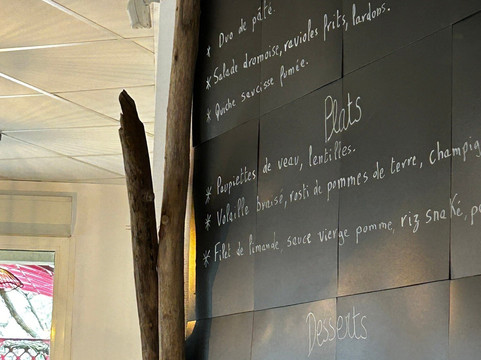 * Duo de pâté
* Salade dromoise, ravioles frits, lardons.
* Quiche saucisse fumée.
Plats
* Paupiettes de veau, lentilles.
* Volaille braisé, rosti de pommes de terre, champig
* Filet de limande, sauce vierge pomme, riz snaké, po
Desserts